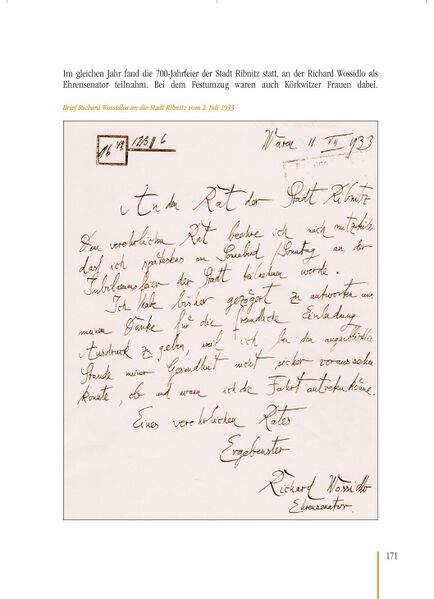 Im gleichen Jahr fand die 700-Jahrfeier der Stadt Ribnitz statt, an der Richard Wossidlo als
Ehrensenator teilnahm. Bei dem Festumzug waren auch Körkwitzer Frauen dabei.
Brief Richard Wossidlos an die Stadt Ribnitz vom 2. Juli 1933
Waren 11 VII 1933
An den Rat der Stadt Ribnitz
Dem verehrlichen Rat beehre ich mich mitzuteilen
daß ich spätestens am Sonnabend / Sonntag an der
Jubiläumsfeier der Stadt teilnehmen werde.
Ich habe bisher gezögert zu antworten um
meinen Danke für die freundliche Einladung
Ausdruck zu geben, weil ich bei den augenblicklichen
Stande meiner Gesundheit nicht sicher voraussehen
konnte, ob und wann ich die Fahrt antreten könne.
Eines verehrlichen Rates
Ergebenster
Richard Wossidlo
Ehrensenator.
171